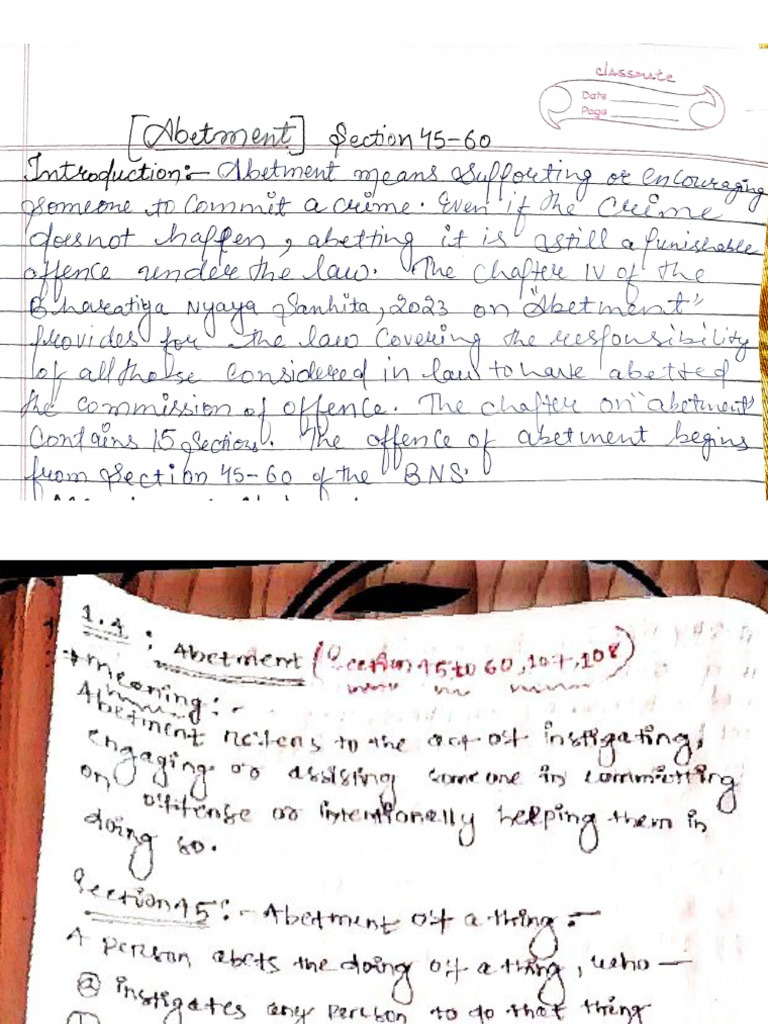 classmate
Date
Page
[Abetment] Section 45-60
Introduction:- Abetment means supporting or encouraging
someone to commit a crime. Even if the crime
does not happen, abetting it is still a punishable
offence under the law. The chapter IV of the
Bharatiya Nyaya Sanhita, 2023 on "Abetment"
provides for the law covering the responsibility
of all those considered in law to have abetted
the commission of offence. The chapter on "abetment"
Contains 15 sections. The offence of abetment begins
from Section 45-60 of the BNS.
1.4: Abetment (Section 45 to 60, 107, 108)
* Meaning:-
Abetment refers to the act of instigating,
engaging or assising someone in committing
an offense or intentionally helping them in
doing so.
Section 45:- Abetment of a thing:-
A person abets the doing of a thing, who—
(a) instigates any person to do that thing